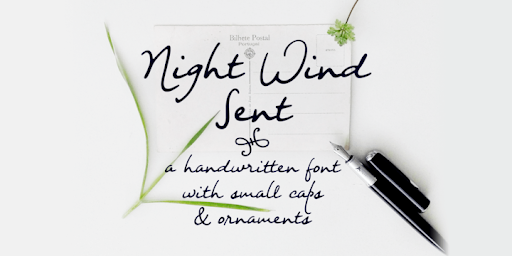 Bilhete Postal
Night Wind
Sent
a handwritten font
with small caps
& ornaments